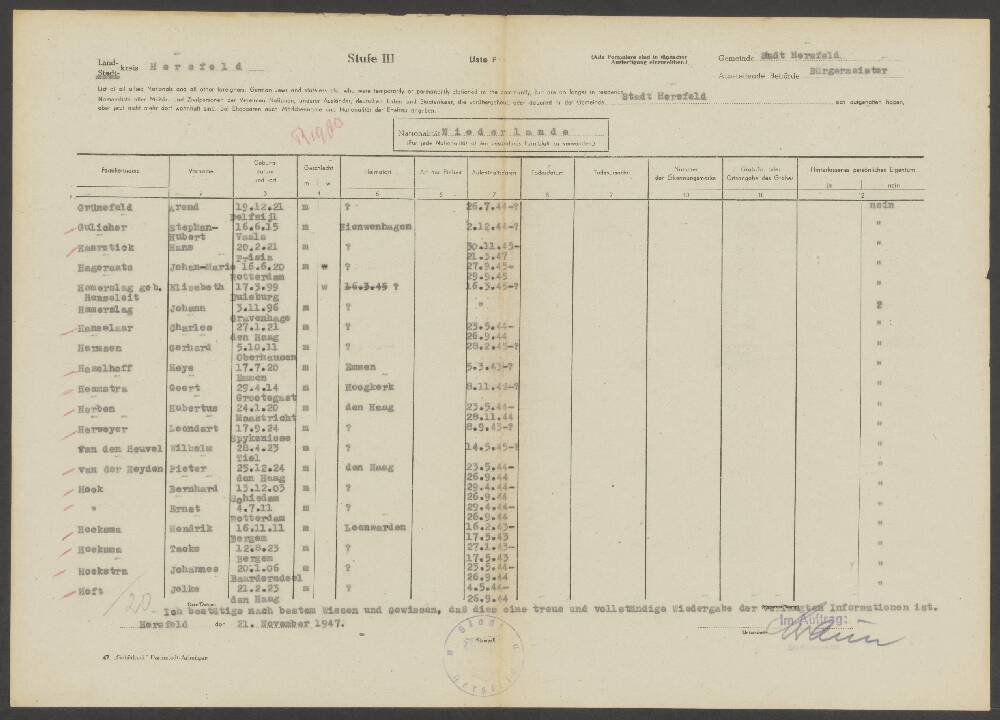 Stufe III
Liste F
(Alle Formulare sind in 4facher
Ausfertigung einzureichen.)
Land-
Stadt- kreis Hersfeld
Gemeinde Stadt Hersfeld
Ausstellende Behörde Bürgermeister
List of all allied Nationals and all other foreigners, German Jews and stateless etc. who were temporarily or permanently stationed in the community, but are no longer in residence.
Stadt Hersfeld
sich aufgehalten haben,
aber jetzt nicht mehr dort wohnhaft sind. Bei Ehepaaren auch Mädchenname und Nationalität der Ehefrau angeben.
Nationalität Niederlande
(Für jede Nationalität ist ein besonderes Formblatt zu verwenden)
Familienname Vorname Geburts- datum und -ort Geschlecht m w Heimatort Aufenthaltsdaten Todesdatum Todesursache Nummer der Erkennungsmarke Grabstr. oder Ortsangabe des Grabes Hinterlassenes persönliches Eigentum ja nein
Grünefeld Arend 19.12.21 m ? 26.7.44-? nein
Delfzijl
Gulicher Stephan- 16.6.15 m Nienwenhagen 2.12.44-? "
Hubert Vaals
Haarstick Hans 20.2.21 m ? 30.11.45- "
21.3.47
Hageraats Johan-Marie 16.6.20 m w ? 27.9.45- "
Rotterdam 29.9.45
Hamerslag geb. Elisabeth 17.3.99 w 16.3.45 ? 16.3.45-? "
Hanseleit Duisburg
Hamerslag Johann 3.11.96 m ? " ?
Gravenhage
Hanselaar Charles 27.1.21 m ? 23.5.44- "
den Haag 26.9.44
Harmsen Gerhard 5.10.11 m ? 28.2.45-? "
Oberhausen
Hazelhoff Heye 17.7.20 m Emmen 5.3.43-? "
Emmen
Heemstra Geert 29.4.14 m Hoogkerk 8.11.42-? "
Grootegast
Herben Hubertus 24.1.20 m den Haag 23.5.44- "
Maastricht 28.11.44
Herweyer Leendart 17.9.24 m ? 8.9.43-? "
Spykenisse
Van den Heuvel Wilhelm 28.4.23 m ? 14.5.45-? "
Tiel
van der Heyden Pieter 25.12.24 m den Haag 23.5.44- "
den Haag 26.9.44
Hoek Bernhard 13.12.03 m ? 29.4.44- "
Schiedam 26.9.44
" Ernst 4.7.11 m ? 29.4.44- "
Rotterdam 26.9.44
Hoeksma Hendrik 16.11.11 m Leenwarden 16.2.43- "
Bergem 17.5.43
Hoeksma Taeke 12.8.23 m ? 27.1.43- "
Bergem 17.5.43
Hoekstra Johannes 20.1.06 m ? 25.5.44- "
Baarderadeel 26.9.44
Hoft Jelke 21.2.23 m ? 4.5.44- "
den Haag 26.9.44
/20
Ich bestätige nach bestem Wissen und Gewissen, daß dies eine treue und vollständige Wiedergabe der verlangten Informationen ist.
Hersfeld den 21. November 1947.
Im Auftrag:
Stempel